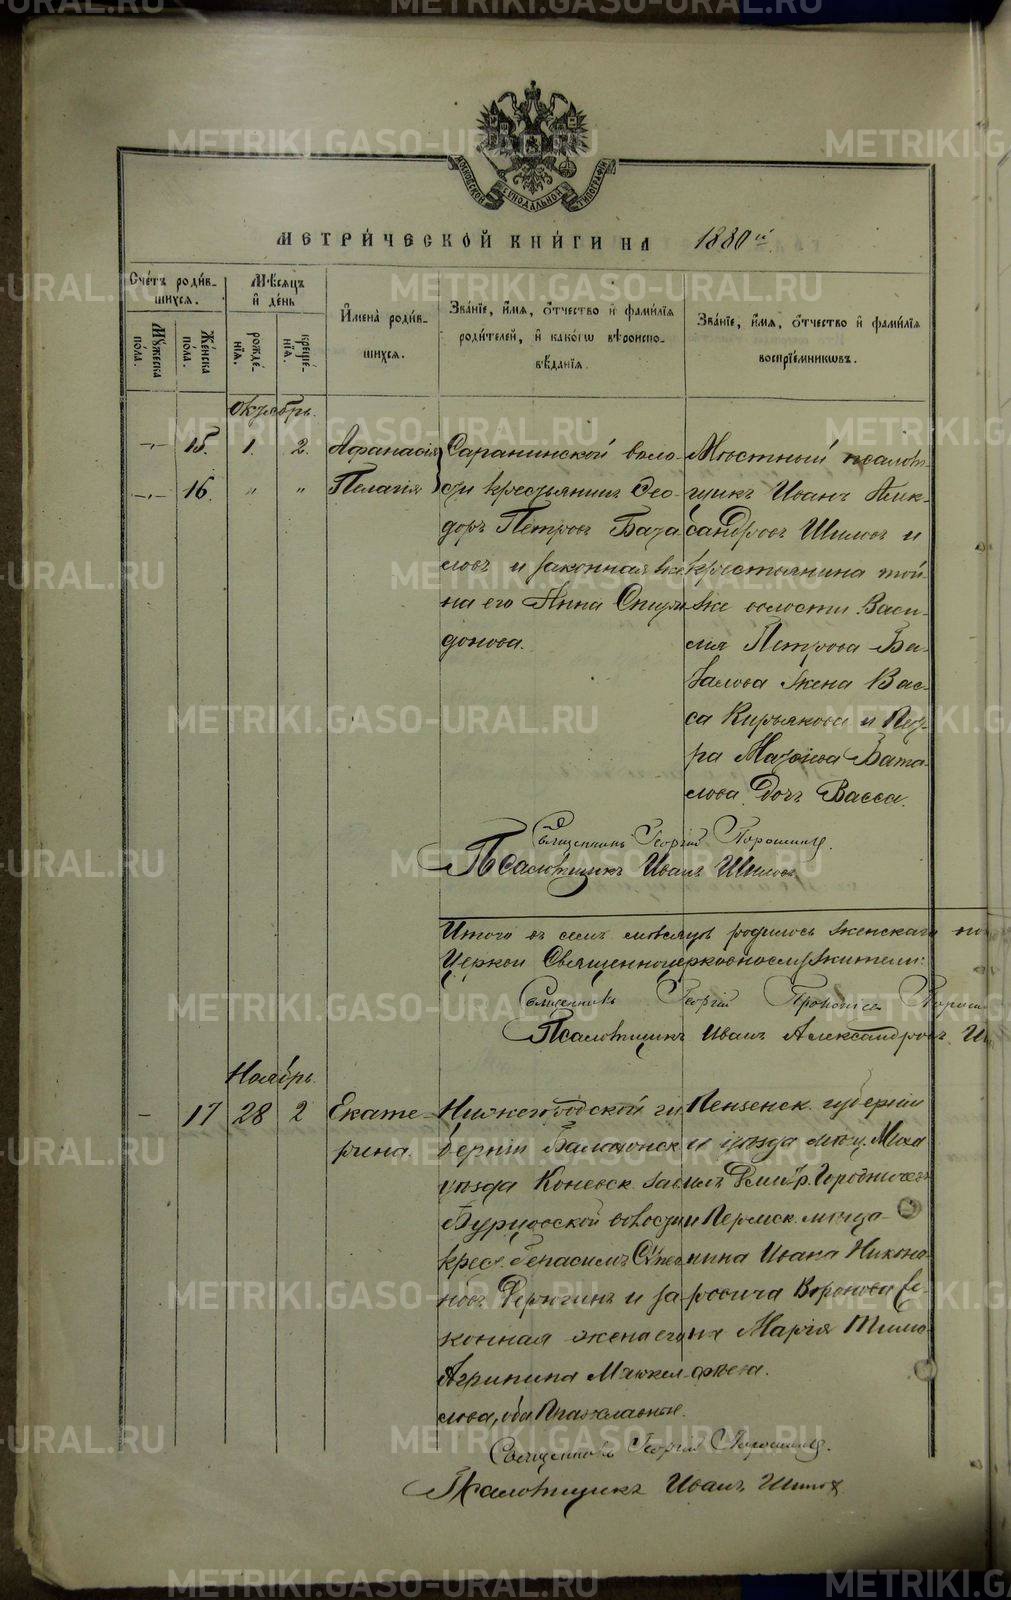 METRIKI.GASO-URAL.RU
МОСКОВСКОЙ СУНОДАЛЬНОЙ ТИПОГРАФІИ
МЕТРИ́ЧЕСКОЙ КНИ́ГИ НА 1880й
Сче́тъ роди́в-
шихся.
Мѣ́сяцъ
и҆ де́нь
Мꙋ́жеска
по́ла.
Же́нска
по́ла.
рожде́-
нїѧ.
креще́-
нїѧ.
И҆мена̀ роди́в-
шихся.
Зва́нїе, и҆́мѧ, ѻ҆́тчество и҆ фами́лїѧ
роди́телей, и҆ како́гѡ вѣроиспо-
вѣ́данїѧ.
Зва́нїе, и҆́мѧ, ѻ҆́тчество и҆ фами́лїѧ
воспрїе́мникѡвъ.
Октябрь.
15. 1. 2. Афанасія
16. " " Пелагія
Саранинской воло-
сти крестьянинъ Ѳео-
доръ Петровъ Бата
ловъ и законная же
на его Анна Спири
донова.
Мѣстный псалом-
щикъ Иванъ Алек-
сандровъ Шиловъ и
крестьянина той
же волости Васи-
лія Петрова Ба-
талова жена Вас-
са Кирьякова и Пет-
ра Батало-
лова дочь Васса.
Священникъ Георгій Порошинъ.
Псаломщикъ Иванъ Шиловъ
Итого въ семъ мѣсяцѣ родилось женскаго по
Церкви Священноцерковнослужители:
Священникъ Георгій Прокопіевъ
Псаломщикъ Иванъ Александровъ
Ноябрь.
17 28 2 Екате-
рина.
Нижегородской гу
берніи
уѣзда
волости
крес. Герасимъ
и за
конная жена его
Агрипина
лова, оба Православные.
Пензенск. губерніи
и уѣзда мѣщ. Миха
илъ
и Пермск. мѣща-
нина Ивана Никоно-
ровича Воронова же-
на Марія Тимо-
феева.
Священникъ Георгій Порошинъ.
Псаломщикъ Иванъ Шиловъ